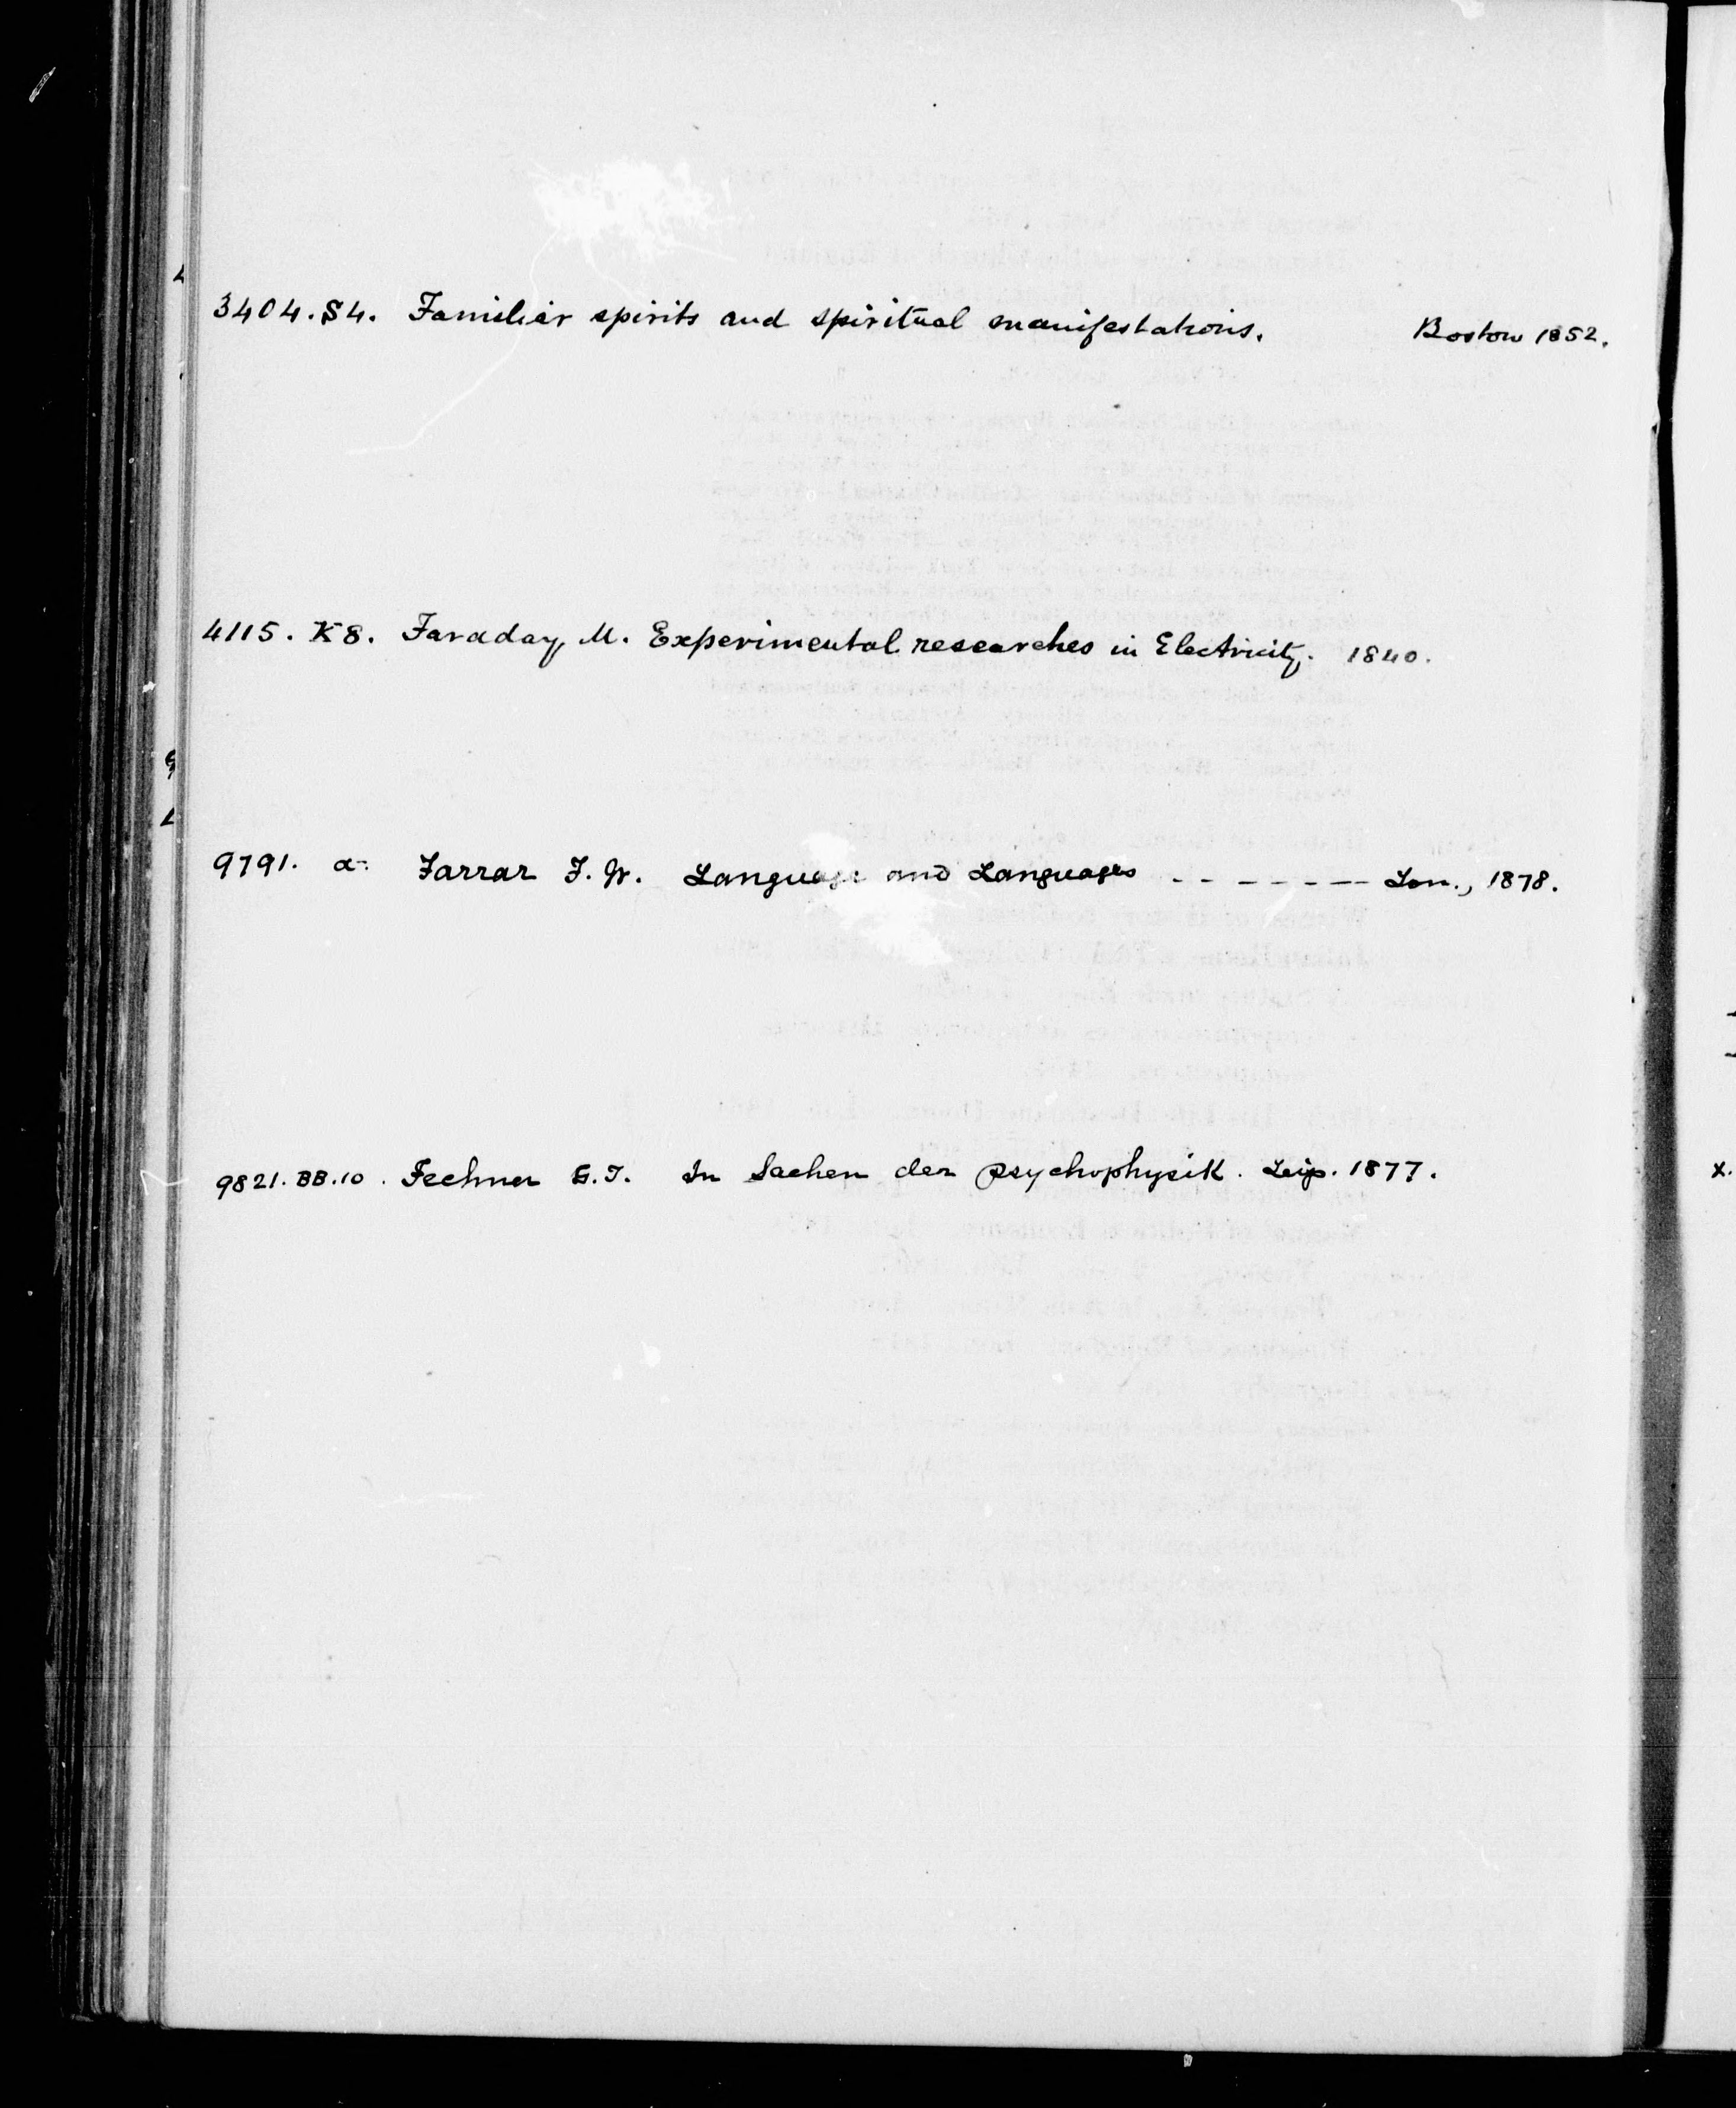 3404.S4. Familiar spirits and spiritual manifestations. Boston 1852.
4115. K8. Faraday, M. Experimental researches in Electricity. 1840.
9791. a. Farrar F. W. Language and Languages - - - - - - - Lon., 1878.
9821.BB.10. Fechner G.T. In Sachen der Psychophysik. Leip. 1877.